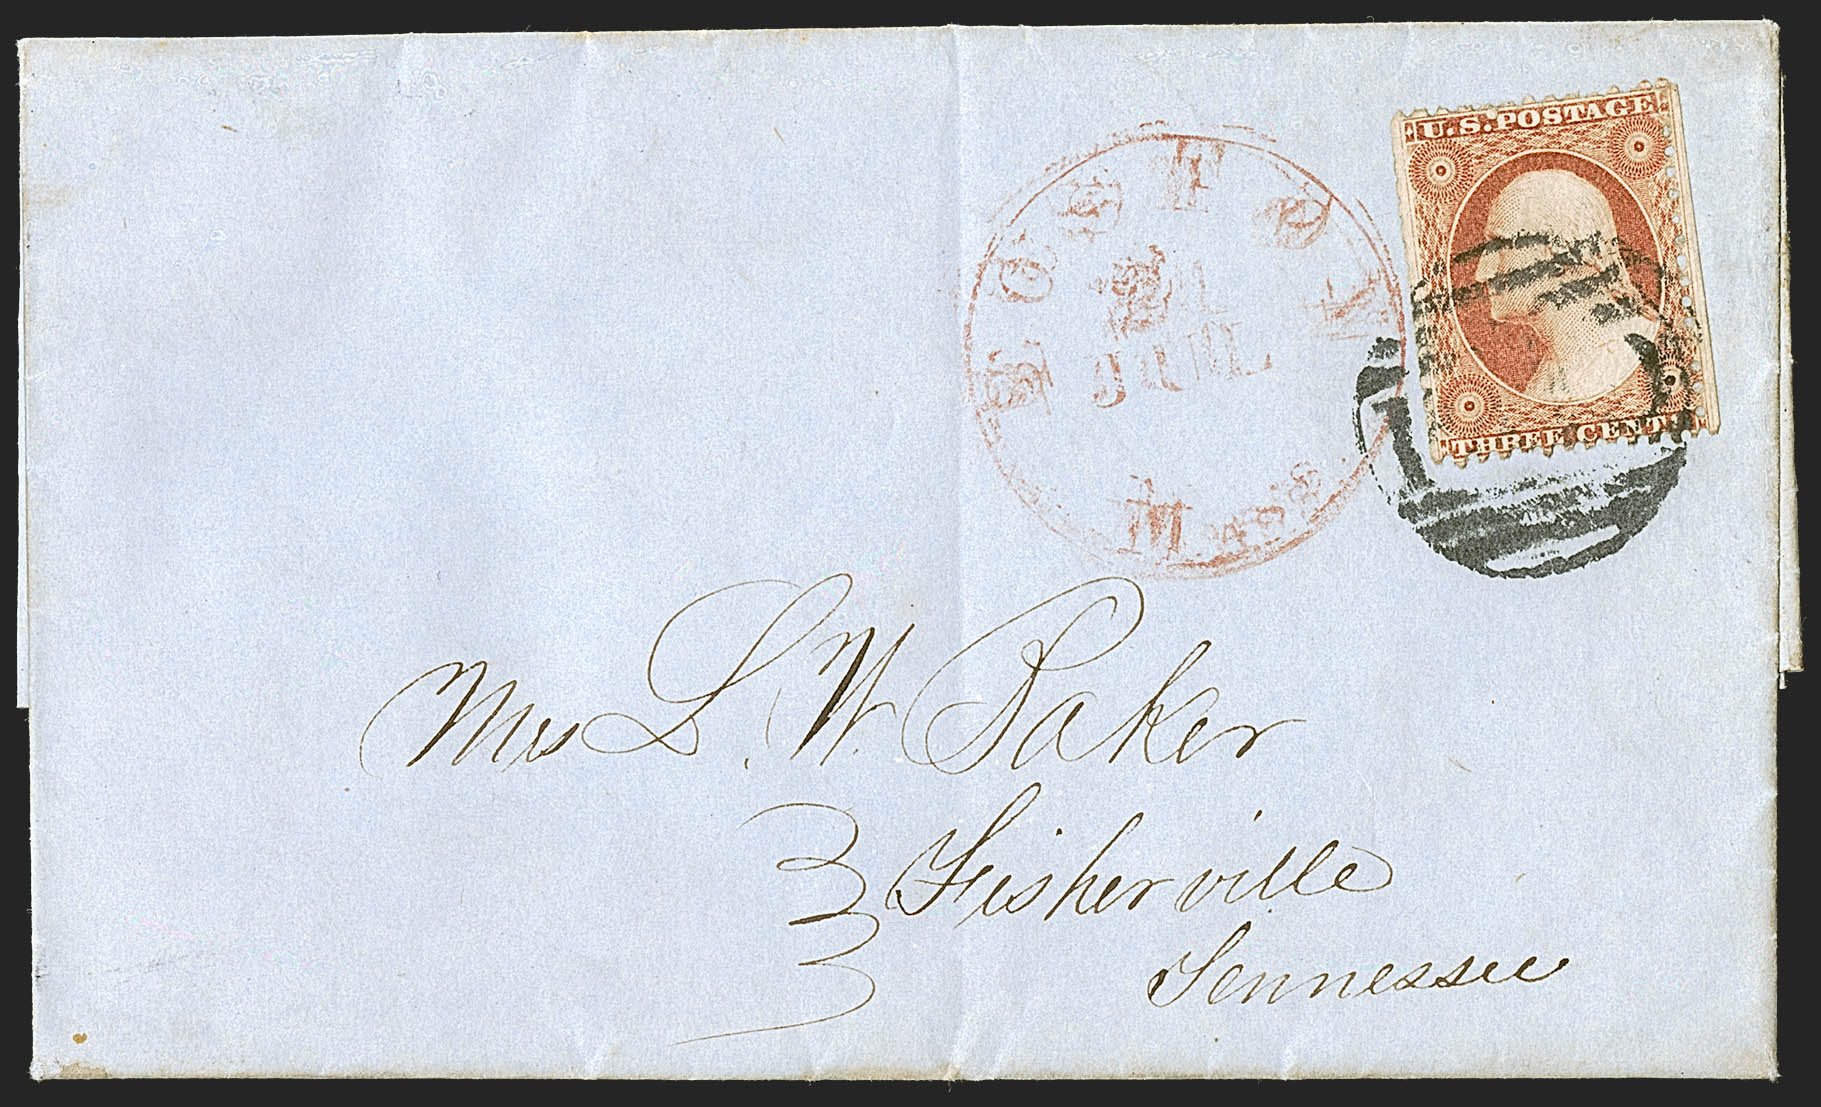 U.S. POSTAGE
BOSTON
JUL
Mass.
THREE CENT
Mrs L. W. Baker
Fisherville
Tennessee